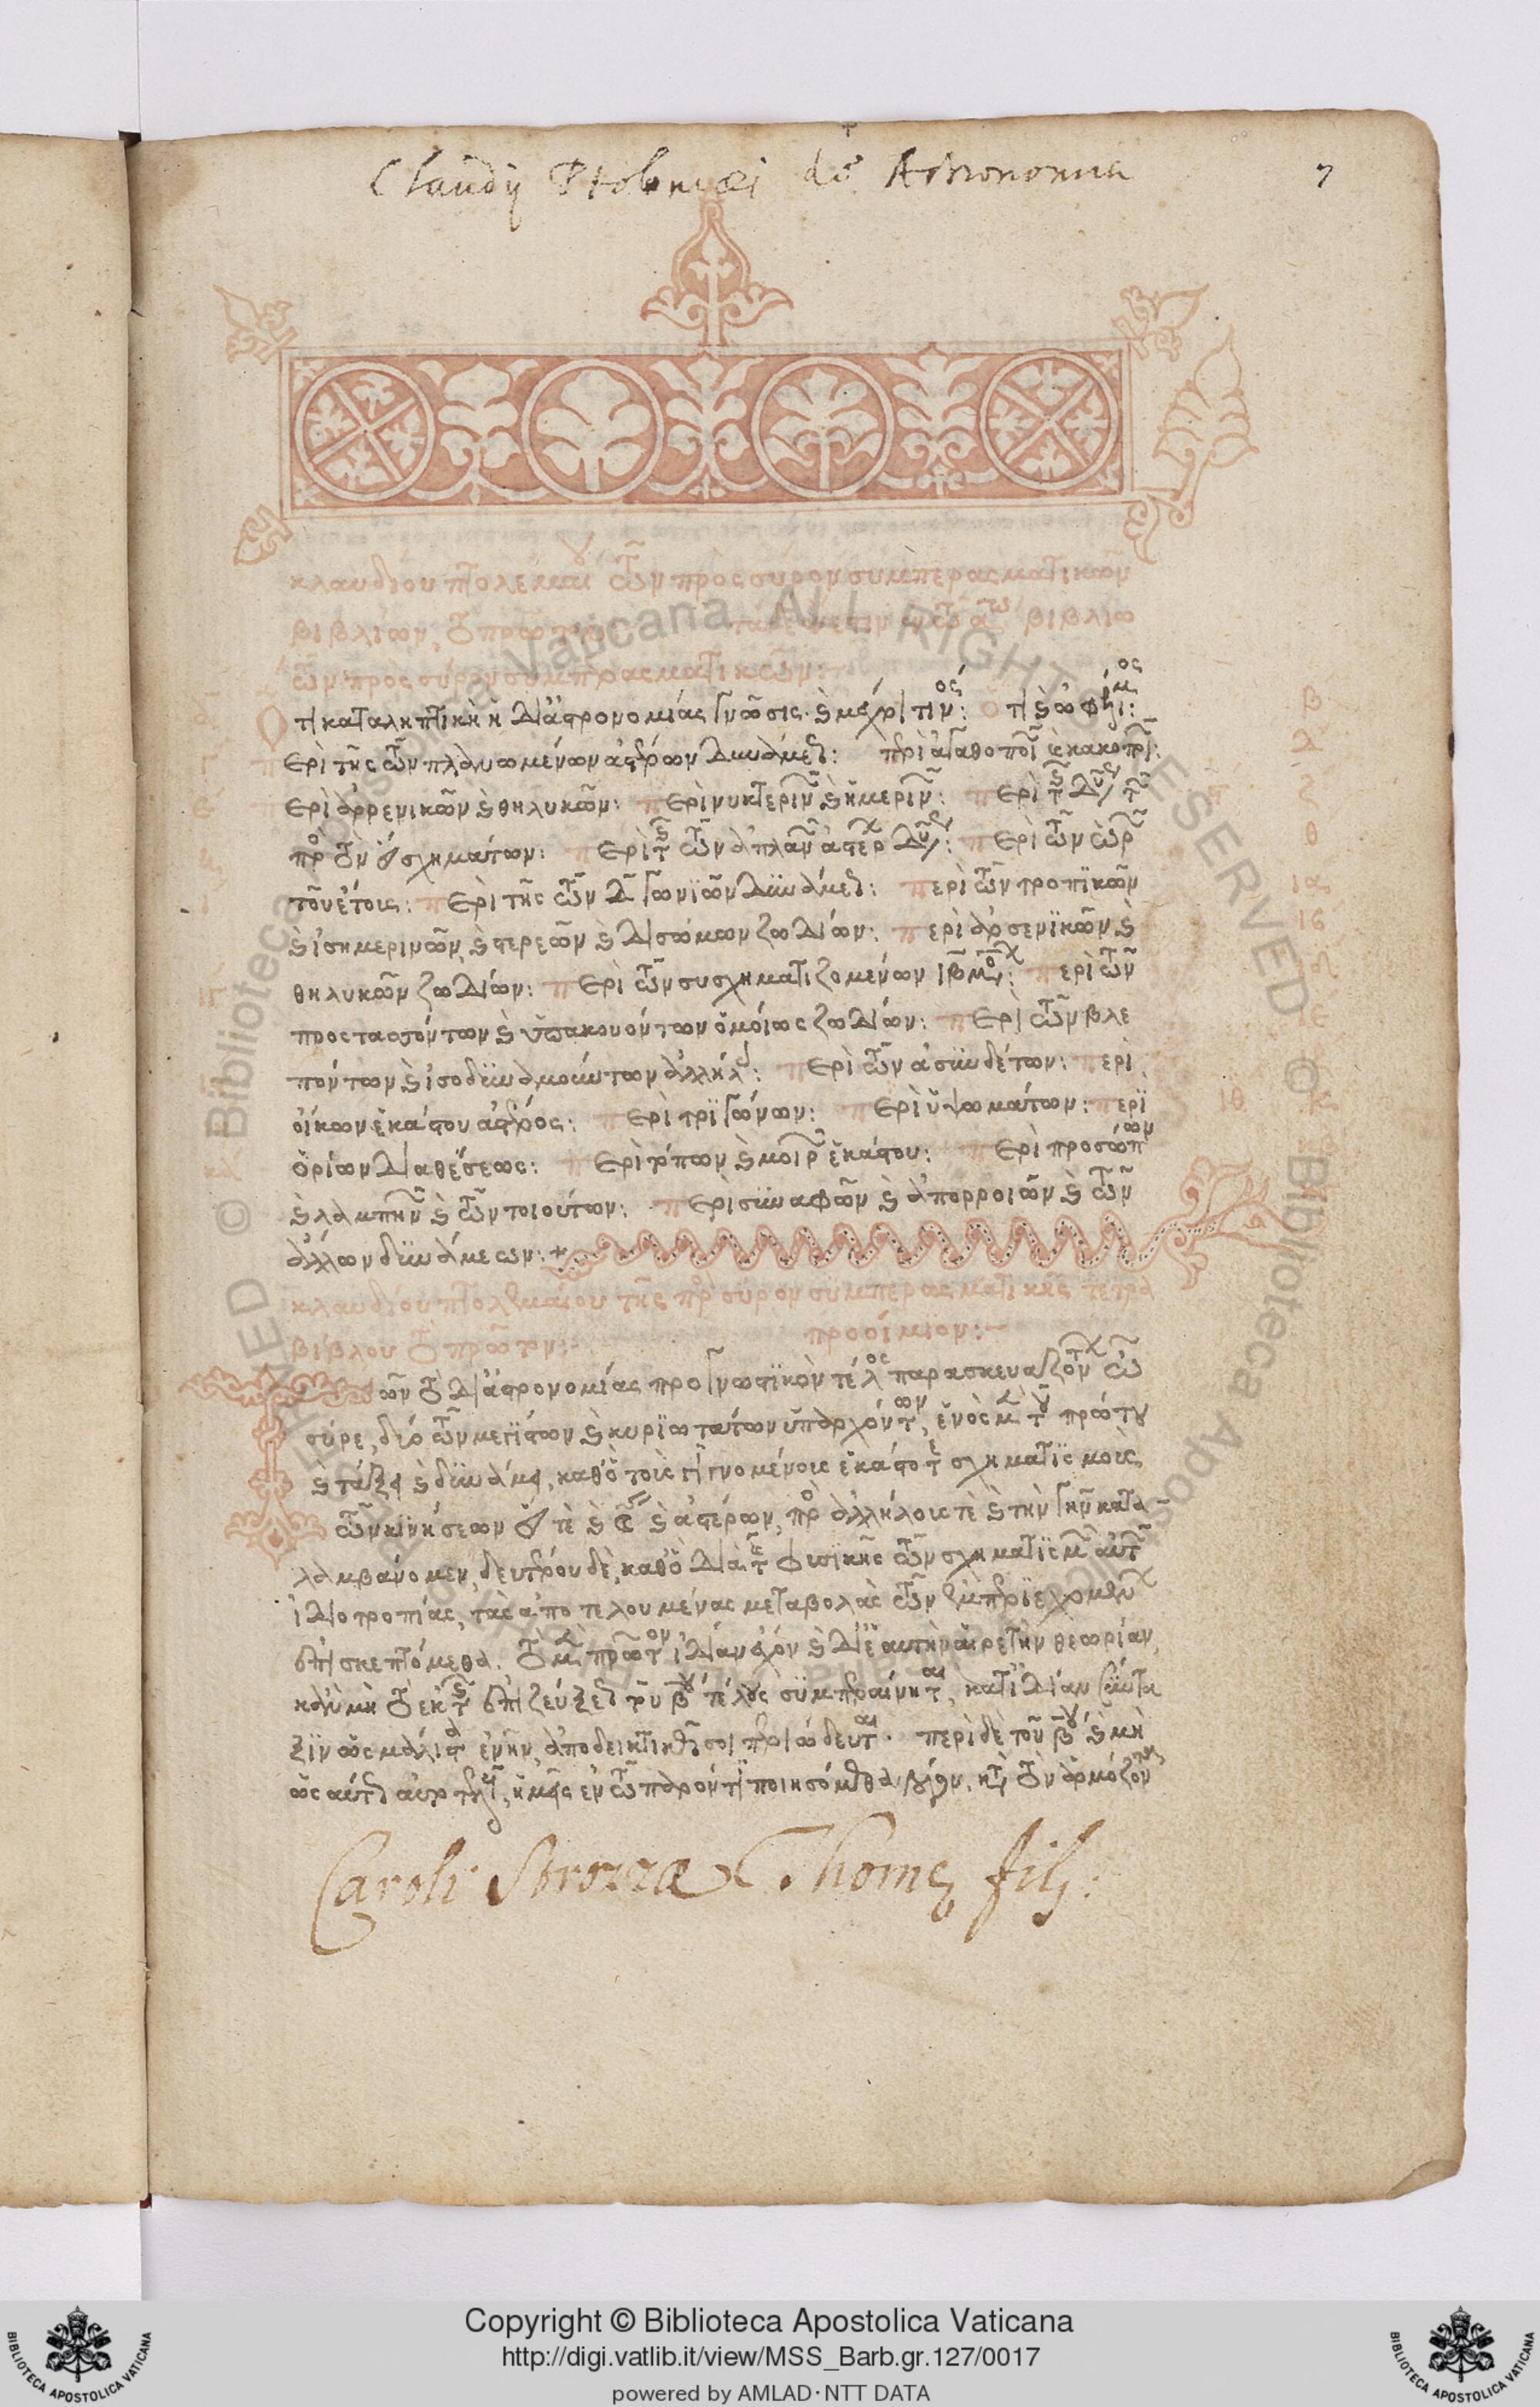 Claudij Ptolemæi de Astronomia
7
κλαυδίου πτολεμαί τῶν πρὸς σύρον συμπερασματικῶν
βιβλίων, τὸ πρῶτον τάδε ἔνεστιν ἐν τῶ α βιβλίω
τῶν πρὸς σύρον συμπερασματικῶν:
Ὅτι καταληπτικὴ ἡ δι' ἀστρονομίας γνῶσις. καὶ μέχρι τίνος: ὅτι καὶ ὠφέλιμος:
περὶ τῆς τῶν πλανωμένων ἀστέρων δυνάμεως: περὶ ἀγαθοποι καὶ κακοποι:
περὶ ἀρρενικῶν καὶ θηλυκῶν: περὶ νυκτεριν καὶ ἡμεριν: περὶ τ δυ τ
πρ τὸν ἥλιον σχηματων: περὶ τ τῶν ἀπλαν ἀστέρ δυ: περὶ τῶν ὡρ
τοῦ ἔτους: περὶ τῆς τῶν δ γωνιῶν δυνάμεως: περὶ τῶν τροπικῶν
καὶ ἰσημερινῶν, καὶ στερεῶν καὶ δισώμων ζωδίων: περὶ ἀρσενικῶν καὶ
θηλυκῶν ζωδίων: περὶ τῶν συσχηματιζομένων ιβμο: περὶ τῶν
προστασσόντων καὶ ὑπακουόντων ὁμοίως ζωδίων: περὶ τῶν βλε
πόντων καὶ ἰσοδυναμούντων ἀλλήλ: περὶ τῶν ἀσυνδέτων: περὶ
οἴκων ἑκάστου ἀστέρος: περὶ τριγώνων: περὶ ὑψωμάτων: περὶ
ὁρίων διαθέσεως: περὶ τόπων καὶ μοιρ ἑκάστου: περὶ προσώπων
καὶ λαμπην καὶ τῶν τοιούτων: περὶ συναφῶν καὶ ἀπορροιῶν καὶ τῶν
ἄλλων δυνάμεων:+
κλαυδίου πτολεμαίου τῆς πρ σύρον συμπερασματικῆς τετρα
βίβλου τὸ πρῶτον:- προοίμιον:-
ῶν τὸ δι' ἀστρονομίας προγνωστικὸν τέλος παρασκευαζόντ ὦ
σύρε, δύο τῶν μεγίστων καὶ κυριωτάτων ὑπαρχόντων, ἑνὸς μ τοῦ πρώτου
καὶ τάξει καὶ δυνάμει, καθ' ὃ τοὺς γιγνομένους ἑκάστοτε σχηματισμοὺς
τῶν κινήσεων ἡλίου τὲ καὶ σελήνης καὶ ἀστέρων, πρ ἀλλήλους τὲ καὶ τὴν γῆν κατα-
λαμβάνομεν, δευτέρου δὲ, καθ' ὃ διὰ τ φυσικῆς τῶν σχηματισμ αὐτ
ἰδιοτροπίας, τὰς ἀποτελουμένας μεταβολὰς τῶν ἐμπεριεχομεν
ἐπισκεπτόμεθα. τὸ μ πρῶτον ἰδίαν ἔχον καὶ δι' ἑαυτὴν αἱρετὴν θεωρίαν,
κἂν μὴ τὸ ἐκ τ ἐπιζεύξεως τοῦ β τέλος συμπεραίνηται, κατ' ἰδίαν σύντα
ξιν ὡς μάλιστα ἐνῆν, ἀποδεικτικῶς σοι περιώδευται. περὶ δὲ τοῦ β καὶ μὴ
ὡς αὔτως αὐτοτελ, ἡμεῖς ἐν τῶ παρόντι ποιησόμεθα λόγον, κατὰ τὸν ἁρμόζον
Caroli Strozzæ Thomę filij:
Copyright © Biblioteca Apostolica Vaticana
http://digi.vatlib.it/view/MSS_Barb.gr.127/0017
powered by AMLAD·NTT DATA
BIBLIOTECA APOSTOLICA VATICANA
BIBLIOTECA APOSTOLICA VATICANA